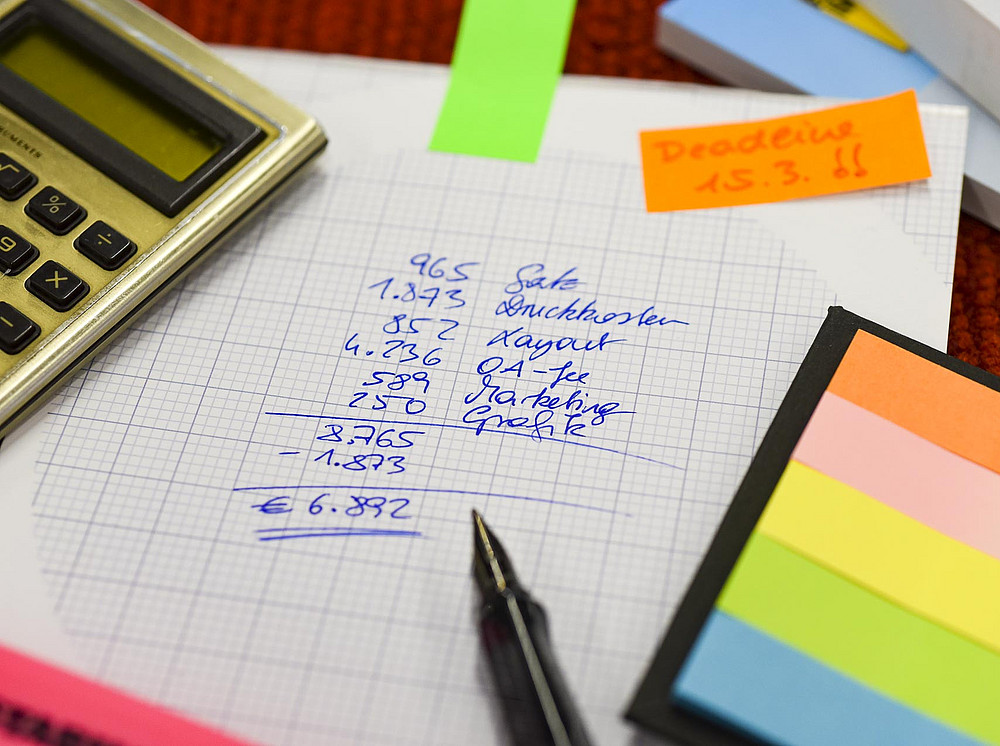 UMENTS
√ %
9 ÷
×
−
Deadline
15.3. !!
965 Satz
1.873 Druckkosten
852 Layout
4.236 OA-fee
589 Marketing
250 Grafik
8.765
- 1.873
€ 6.892